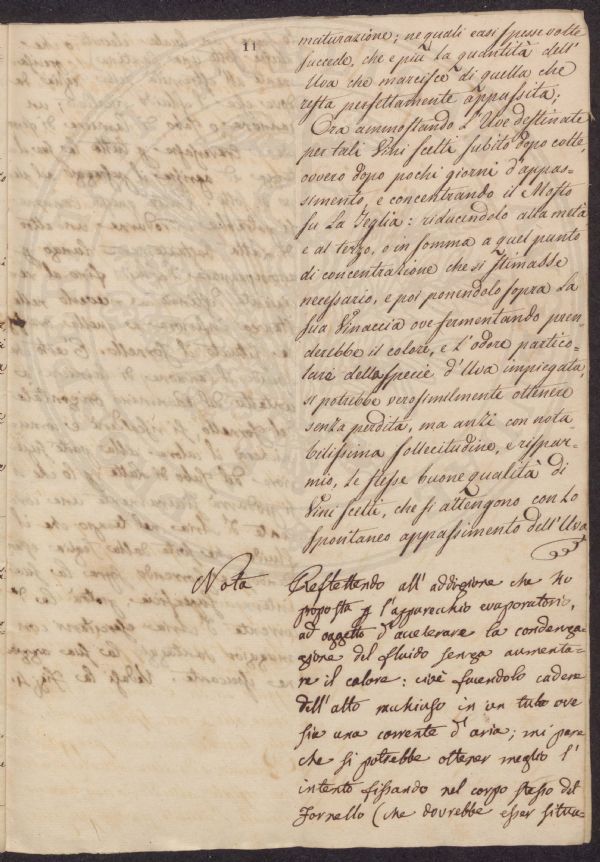 11
maturazione; ne quali casi spesse volte
succede, che e più la quantità dell'
Uva che marcisce di quella che
resta perfettamente appassita;
Ora ammostando L'Uve destinate
per tali Vini scelti subito dopo colte,
ovvero dopo pochi giorni d'appas-
simento, e concentrando il Mosto
su La Teglia: riducendolo alla metà
e al terzo, o in somma a quel punto
di concentrazione che si stimasse
necessario, e poi ponendolo sopra La
sua Vinaccia ove fermentando pren-
derebbe il colore, e L'odore partico-
lare della specie d'Uva impiegata,
si potrebbe verosimilmente ottenere
senza perdita, ma anzi con nota
bilissima sollecitudine, e rispar-
mio, Le stesse buone qualità di
Vini scelti, che si attengono con Lo
spontaneo appassimento dell'Uva
Nota Reflettendo all'addizione che ho
proposta p l'apparechio evaporatorio,
ad oggetto d'accelerare la condensa-
zione del fluido senza aumenta-
re il calore: cioè facendolo cadere
dell'alto muchiuso in un tubo ove
sia una corrente d'aria; mi pare
che si potrebbe ottener meglio l'
intento fissando nel corpo stesso del
Fornello (che dovrebbe esser situa-